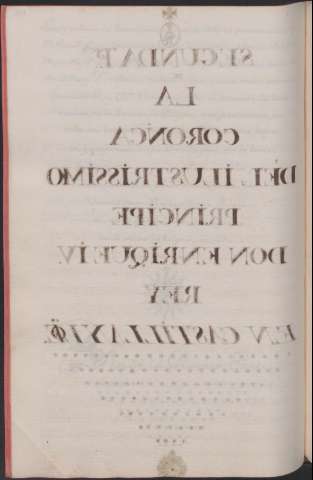 SEGUNDA P
LA
CORONCA
DEL ILUSTRISSIMO
PRINCIPE
DON ENRIQUE IV
REY
EN CASTILLA Y